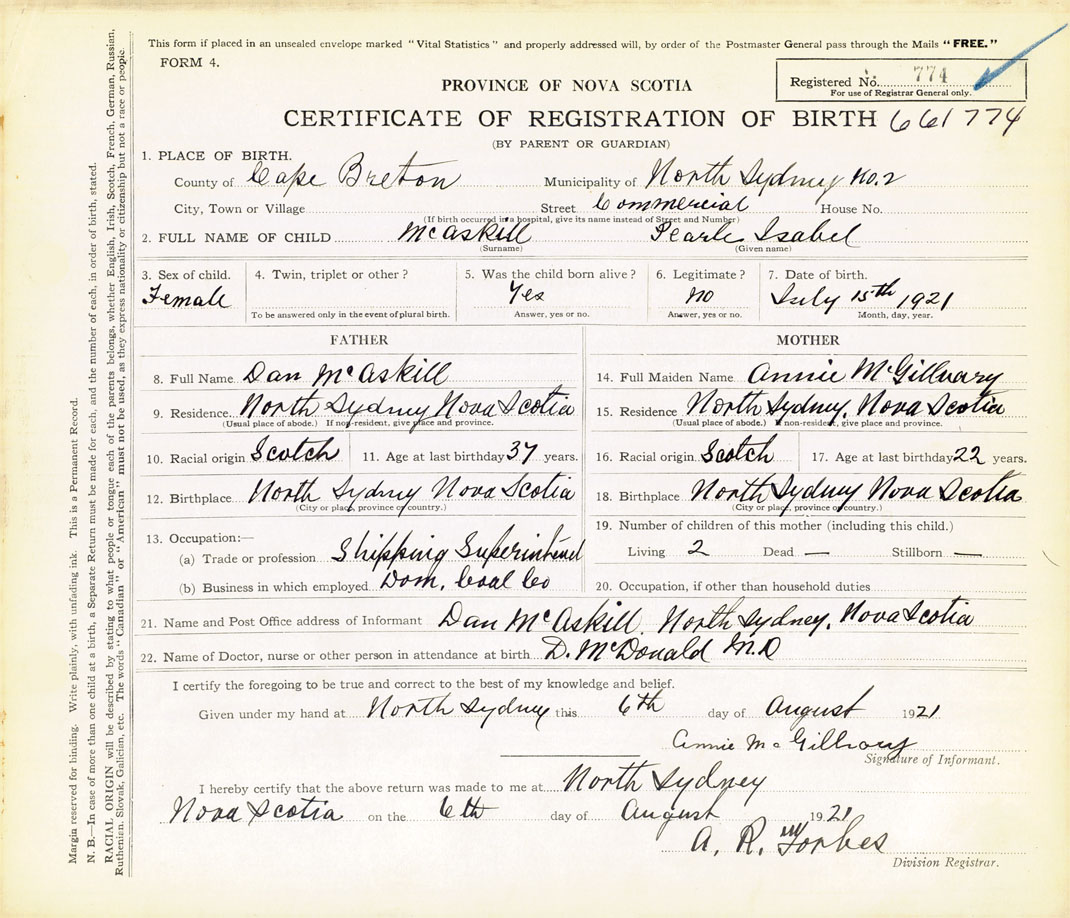 This form if placed in an unsealed envelope marked "Vital Statistics" and properly addressed will, by order of the Postmaster General pass through the Mails "FREE."
FORM 4.
Registered No. 774
For use of Registrar General only.
PROVINCE OF NOVA SCOTIA
CERTIFICATE OF REGISTRATION OF BIRTH 661774
(BY PARENT OR GUARDIAN)
1. PLACE OF BIRTH.
County of Cape Breton Municipality of North Sydney No. 2
City, Town or Village Street Commercial House No.
(If birth occurred in a hospital, give its name instead of Street and Number)
2. FULL NAME OF CHILD McAskill Pearle Isabel
(Surname) (Given name)
3. Sex of child. 4. Twin, triplet or other? 5. Was the child born alive? 6. Legitimate? 7. Date of birth.
Female Yes No July 15th 1921
To be answered only in the event of plural birth. Answer, yes or no. Answer, yes or no. Month, day, year.
FATHER
8. Full Name Dan McAskill
9. Residence North Sydney Nova Scotia
(Usual place of abode.) If non-resident, give place and province.
10. Racial origin Scotch 11. Age at last birthday 37 years.
12. Birthplace North Sydney Nova Scotia
(City or place, province or country.)
13. Occupation:—
(a) Trade or profession Shipping Superintend
(b) Business in which employed Dom. Coal Co
MOTHER
14. Full Maiden Name Annie McGillvary
15. Residence North Sydney, Nova Scotia
(Usual place of abode.) If non-resident, give place and province.
16. Racial origin Scotch 17. Age at last birthday 22 years.
18. Birthplace North Sydney Nova Scotia
(City or place, province or country.)
19. Number of children of this mother (including this child.)
Living 2 Dead — Stillborn —
20. Occupation, if other than household duties
21. Name and Post Office address of Informant Dan McAskill. North Sydney, Nova Scotia
22. Name of Doctor, nurse or other person in attendance at birth D. McDonald M.D
I certify the foregoing to be true and correct to the best of my knowledge and belief.
Given under my hand at North Sydney this 6th day of August 1921
Annie McGillvary
Signature of Informant.
I hereby certify that the above return was made to me at North Sydney
Nova Scotia on the 6th day of August 1921
A. R. Forbes
Division Registrar.
Margin reserved for binding. Write plainly, with unfading ink. This is a Permanent Record.
N. B.—In case of more than one child at a birth, a Separate Return must be made for each, and the number of each, in order of birth, stated.
RACIAL ORIGIN will be described by stating to what people or tongue each of the parents belongs, whether English, Irish, Scotch, French, German, Russian,
Ruthenian, Slovak, Galician, etc. The words "Canadian" or "American" must not be used, as they express nationality or citizenship but not a race or people.